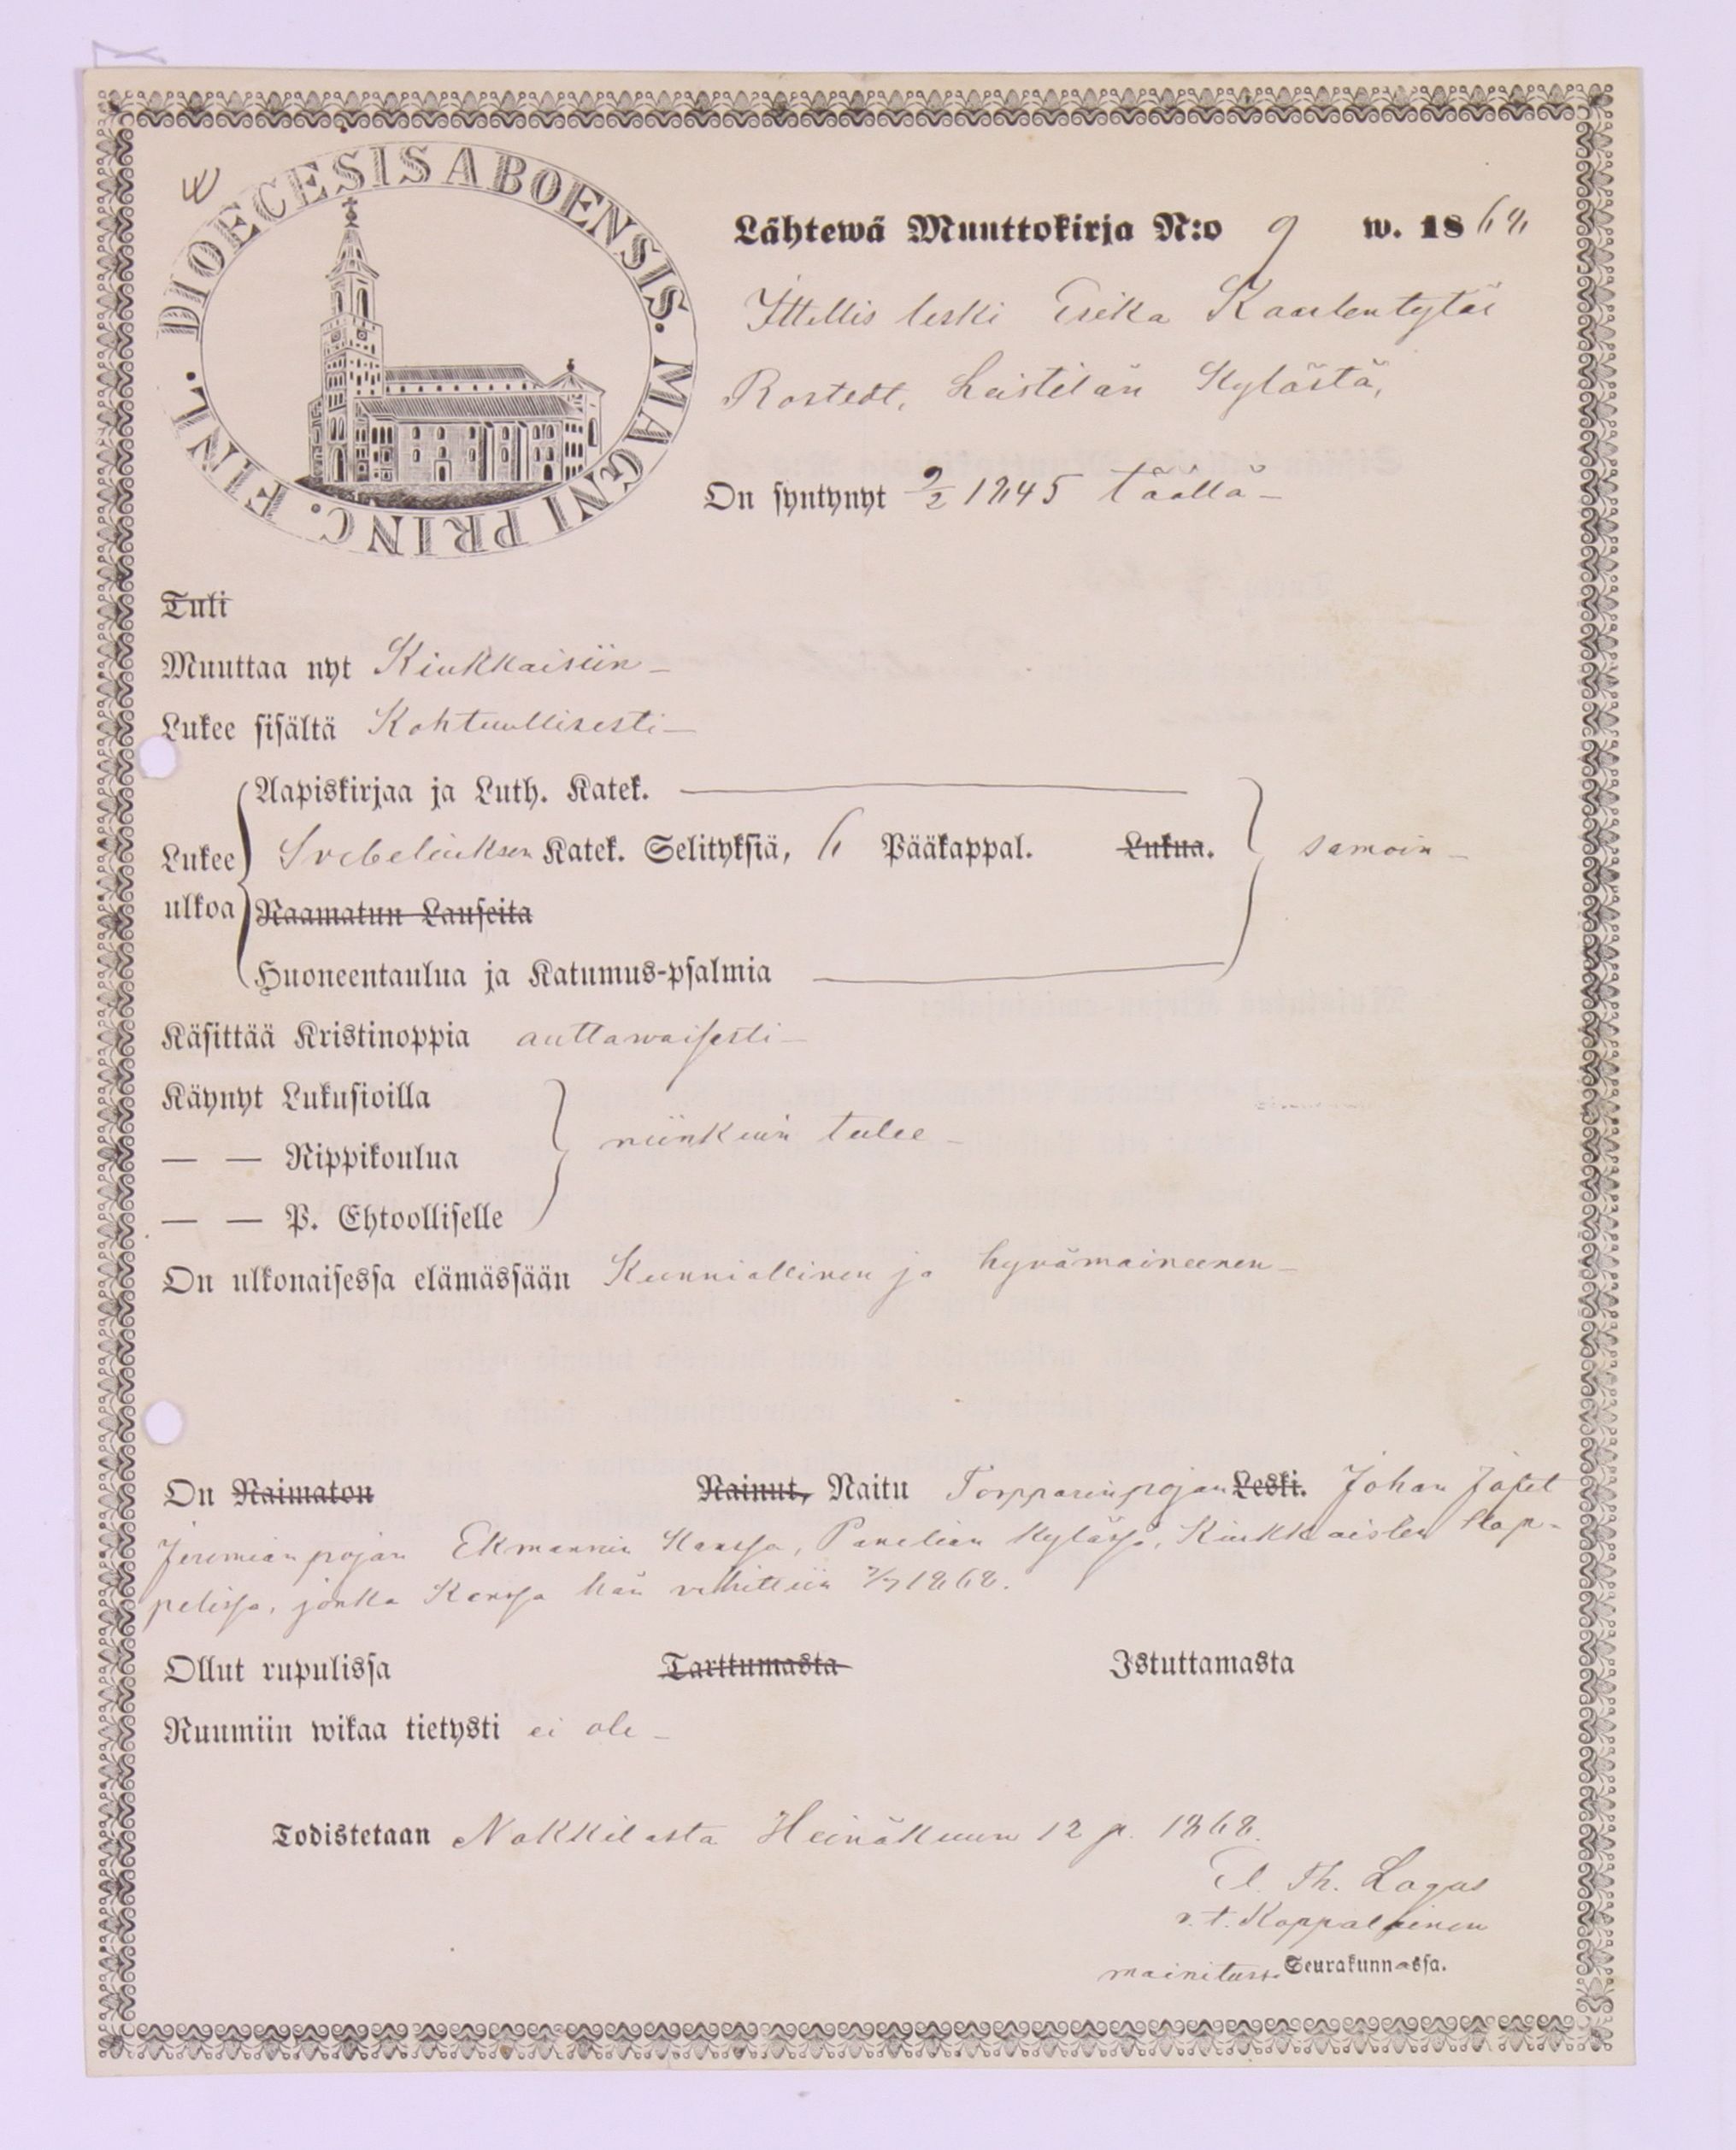 DIOECESIS ABOENSIS. MAGNI PRINC. FINL.
Lähtewä Muuttokirja N:o 9 w. 1868
Ittellis leski Erika Kaarlentytär
Rostedt, Leistilän Kylästä,
On syntynyt 9/2 1845 täällä –
Tuli
Muuttaa nyt Kiukkaisiin –
Lukee sisältä Kohtuullisesti –
Aapiskirjaa ja Luth. Katek.
Lukee Svebeliuksen Katek. Selityksiä, 6 Pääkappal. Lukua. samoin –
ulkoa Raamatun Lauseita
Huoneentaulua ja Katumus-psalmia
Käsittää Kristinoppia auttawaisesti –
Käynyt Lukusioilla
— — Rippikoulua niinkuin tulee –
— — P. Ehtoolliselle
On ulkonaisessa elämässään Kunniallinen ja hyvämaineenen –
On Naimaton Nainut, Naitu Torpparinpojan Leski. Johan Jafet
Jeremianpojan Ekmannin Kanssa, Panelian Kylässä, Kiukkaisten Kap-
pelissa, jonka Kanssa hän vihittiin 7/7 1868.
Ollut rupulissa Tarttumasta Istuttamasta
Ruumiin wikaa tietysti ei ole –
Todistetaan Nakkilasta Heinäkuun 12 p. 1868.
Th. Lagus
v. t. Kappalainen
mainitussa Seurakunnassa.